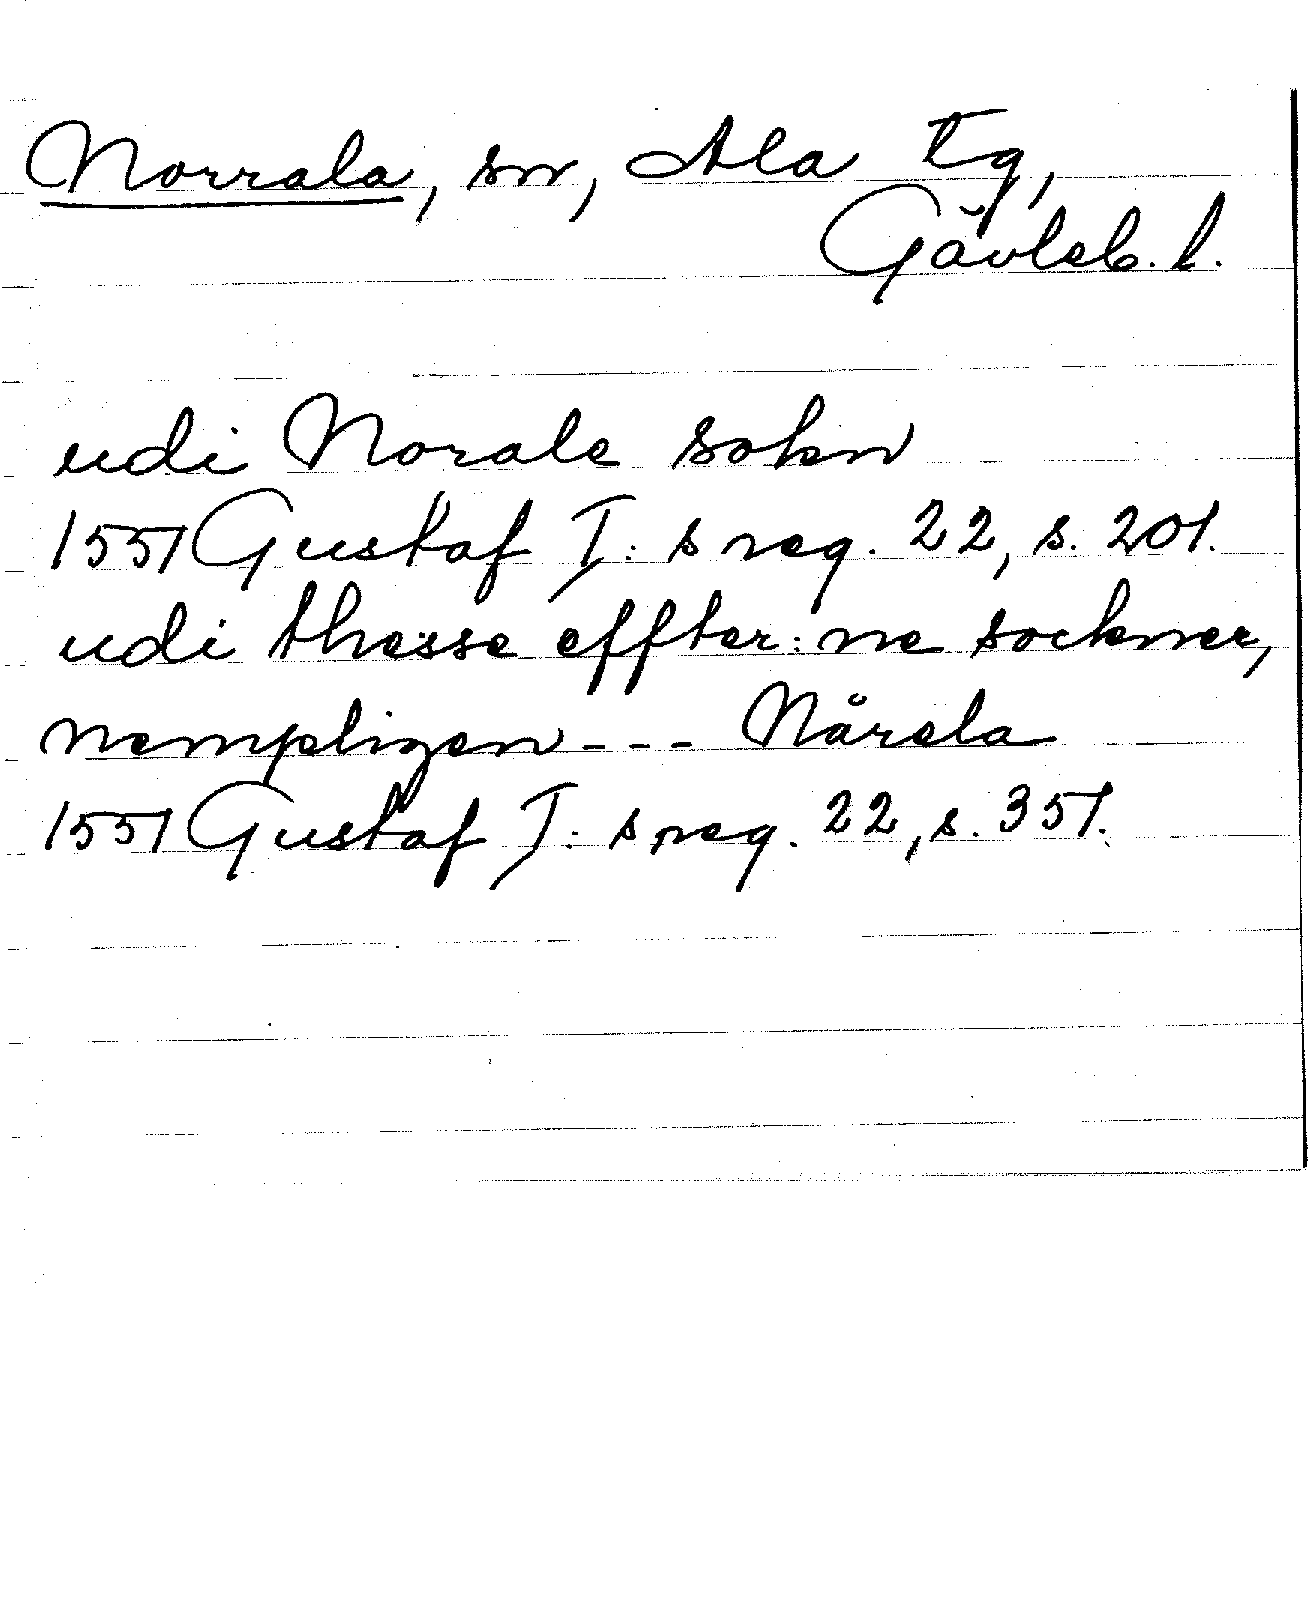 Norrala, sn, Ala tg,
Gävleb. l.
udi Norale sokn
1551 Gustaf I: s reg. 22, s. 201.
udi thesse effter: ne sockner,
nempligen --- Nårela
1551 Gustaf I: s reg. 22, s. 351.